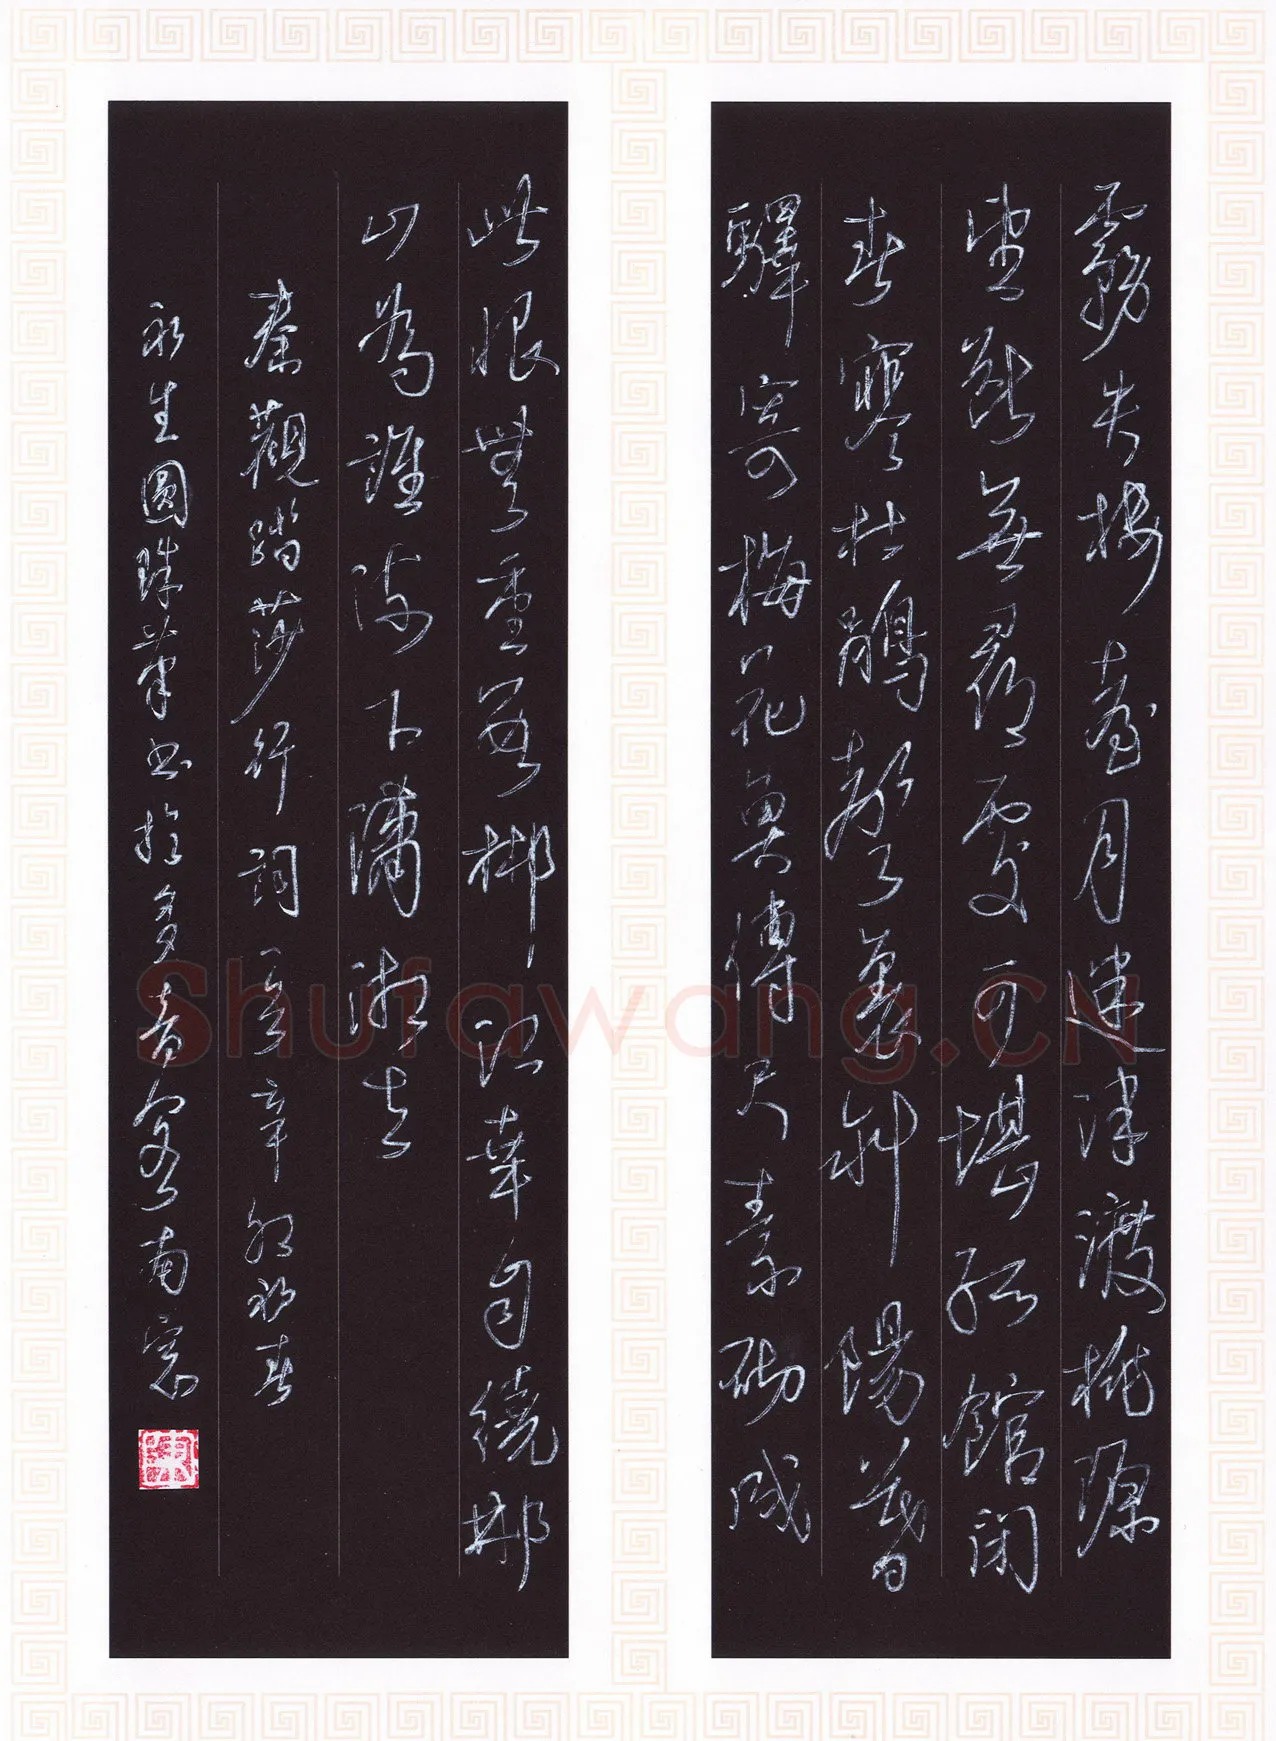 霧失樓臺月迷津渡桃源
望斷無尋處可堪孤館閉
春寒杜鵑聲裏斜陽暮
驛寄梅花魚傳尺素砌成
此恨無重數郴江幸自繞郴
山為誰流下瀟湘去
秦觀踏莎行詞一首辛卯初春
永生圓珠筆書於南窗
Shufawang.CN